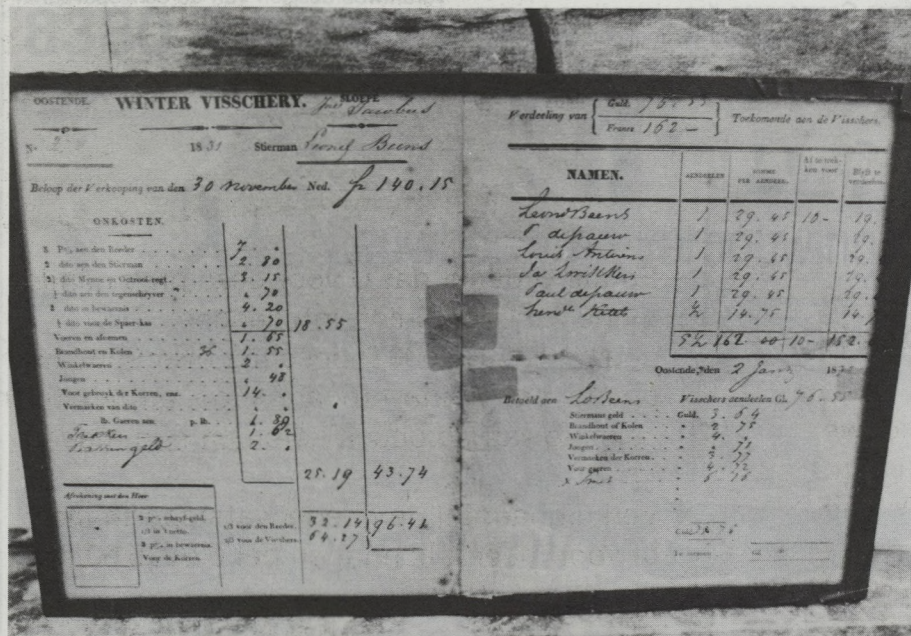 OOSTENDE. WINTER VISSCHERY. SLOEPE Jacobus
N° 2 1831 Stierman Leond Beens
Beloop der Verkooping van den 30 november Ned. fl 140.15
ONKOSTEN.
5 Pct. aen den Reeder 7 .
2 dito aen den Stierman 2.80
dito Mynen en Octrooi-regt 3.15
½ dito aen den tegenschryver . 70
3 dito in bewarnis 4.20
½ dito voor de Spaer-kas . 70 18.55
Voeren en afnemen 1.65
Brandhout en Kolen 1.55
Winkelwaeren 2 .
Jongen . 48
Voor gebruyk der Korren, enz. 14 .
Vermarken van dito . .
lb. Gaeren aen p. lb. 1.89
1.62
geld 2 .
25.19 43.74
Afrekening met den Heer
2 pct. schryf-geld.
1/3 in Voorts.
3 pct. in bewarnis.
Voor de Korren.
1/3 voor den Reeder. 32.14 96.41
2/3 voor de Visschers. 64.27
Verdeeling van { Guld. 76.55 Francs 162 – } Toekomende aen de Visschers.
NAMEN. AENDEELEN SOMME PER AENDEEL Af te trekken voor Blyft te
Leond Beens 1 29.45 10– 19.
P depauw 1 29.45 29.
Louis Antwens 1 29.45 29.
1 29.45 29.
Paul depauw 1 29.45 29.
½ 14.75 14.
5½ 162 10– 152.
Oostende, den 2 Janv 18
Betaeld aen Lo Beens Visschers aendeelen Gl. 76.55
Stiermans geld Guld. 3.64
Brandhout of Kolen 2.75
Winkelwaeren 4 .
Jongen . 71
Vermaeken der Korren 3.77
Voor gaeren 4.72
Guld.